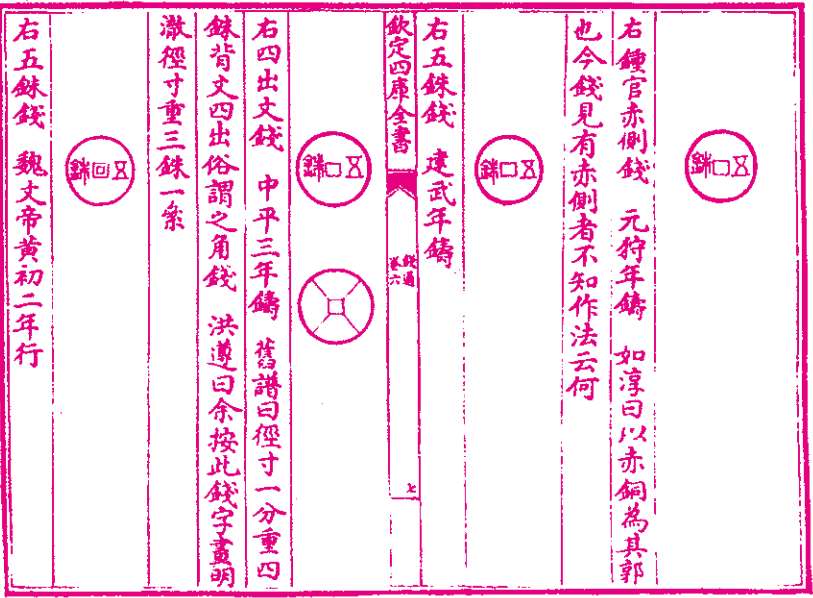 五銖
右鍾官赤側錢　元狩年鑄　如淳曰以赤銅為其郭
也今錢見有赤側者不知作法云何
五銖
右五銖錢　建武年鑄
欽定四庫全書
錢通
卷六
七
五銖
右四出文錢　中平三年鑄　舊譜曰徑寸一分重四
銖背文四出俗謂之角錢　洪遵曰余按此錢字畫明
澂徑寸重三銖一絫
五銖
右五銖錢　魏文帝黃初二年行